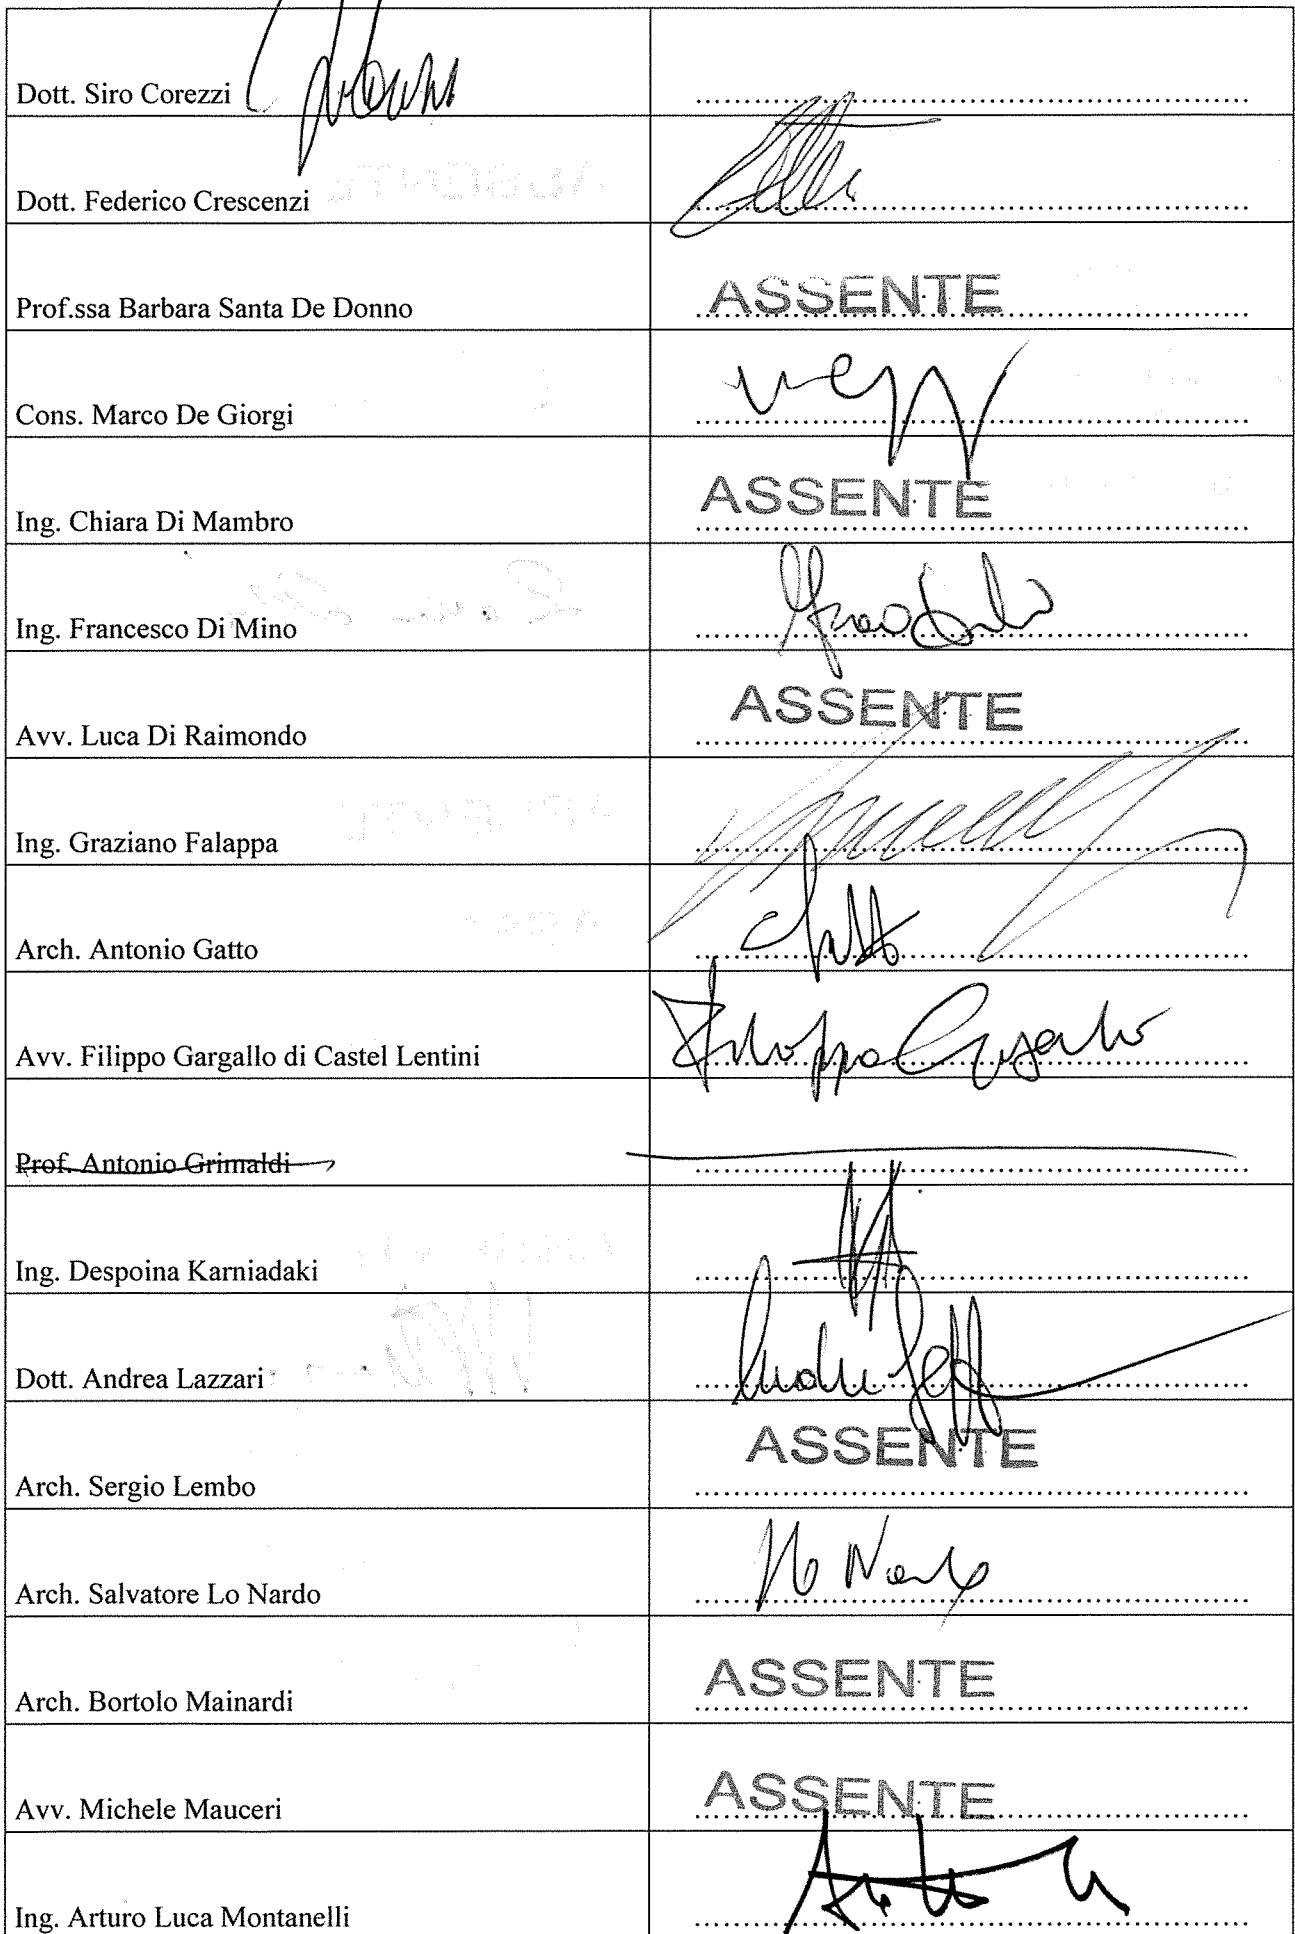 Dott. Siro Corezzi
Dott. Federico Crescenzi
Prof.ssa Barbara Santa De Donno ASSENTE
Cons. Marco De Giorgi
Ing. Chiara Di Mambro ASSENTE
Ing. Francesco Di Mino
Avv. Luca Di Raimondo ASSENTE
Ing. Graziano Falappa
Arch. Antonio Gatto
Avv. Filippo Gargallo di Castel Lentini Filippo Gargallo
Prof. Antonio Grimaldi
Ing. Despoina Karniadaki
Dott. Andrea Lazzari
Arch. Sergio Lembo ASSENTE
Arch. Salvatore Lo Nardo Lo Nardo
Arch. Bortolo Mainardi ASSENTE
Avv. Michele Mauceri ASSENTE
Ing. Arturo Luca Montanelli